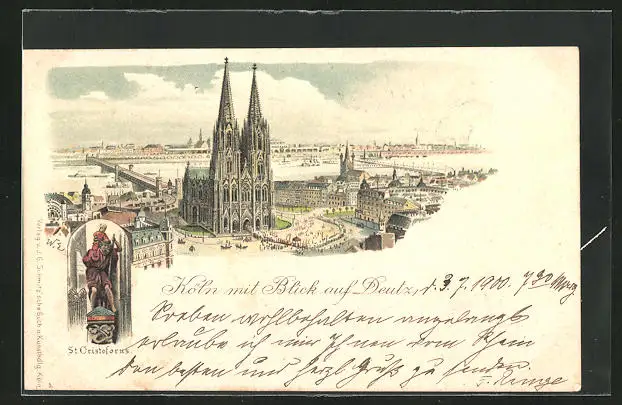 Köln mit Blick auf Deutz, d. 3.7.1900. 7 30 Morg
Soeben wohlbehalten angelangt
erlaube ich mir Ihnen vom Rhein
den besten und herzl. Gruß zu senden.
F. Runge
St. Cristoforus.
Verlag v. J. G. Schmitz'sche Buch u. Kunsthdlg. Köln